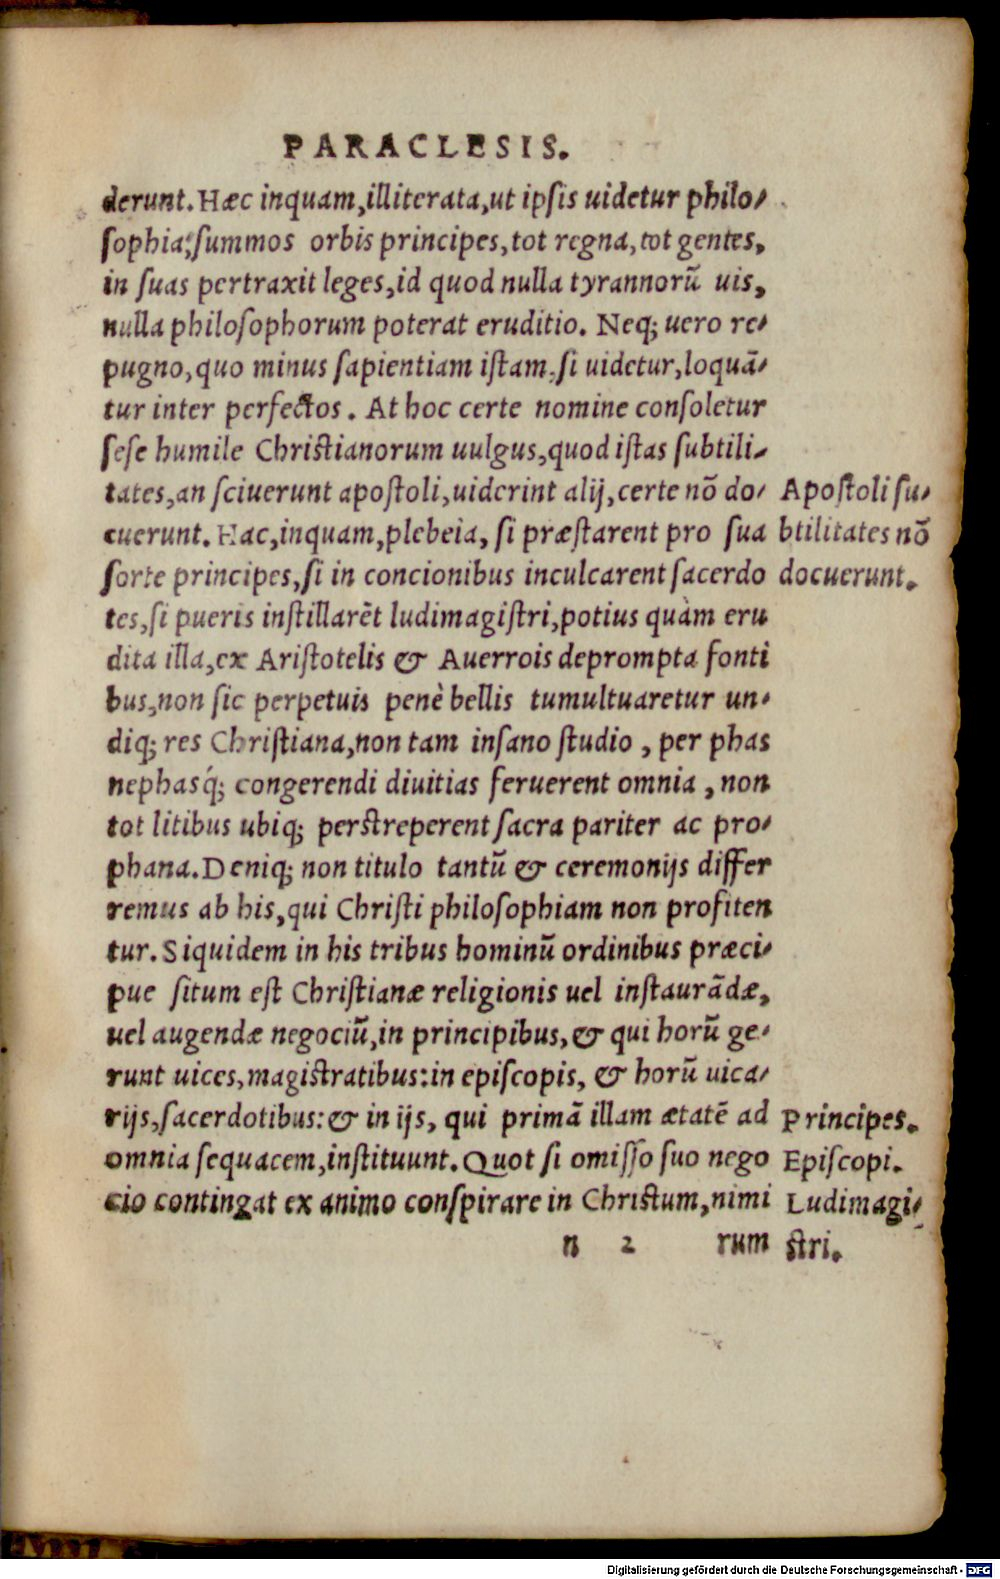 PARACLESIS.
derunt. Hæc inquam, illiterata, ut ipsis uidetur philo-
sophia, summos orbis principes, tot regna, tot gentes,
in suas pertraxit leges, id quod nulla tyrannorũ uis,
nulla philosophorum poterat eruditio. Neq; uero re-
pugno, quo minus sapientiam istam, si uidetur, loquã-
tur inter perfectos. At hoc certe nomine consoletur
sese humile Christianorum uulgus, quod istas subtili-
tates, an sciuerunt apostoli, uiderint alij, certe nõ do-
cuerunt. Hac, inquam, plebeia, si præstarent pro sua
sorte principes, si in concionibus inculcarent sacerdo
tes, si pueris instillarẽt ludimagistri, potius quàm eru
dita illa, ex Aristotelis & Auerrois deprompta fonti
bus, non sic perpetuis penè bellis tumultuaretur un-
diq; res Christiana, non tam insano studio, per phas
nephasq́; congerendi diuitias feruerent omnia, non
tot litibus ubiq; perstreperent sacra pariter ac pro-
phana. Deniq; non titulo tantũ & ceremonijs differ
remus ab his, qui Christi philosophiam non profiten
tur. Siquidem in his tribus hominũ ordinibus præci-
pue situm est Christianæ religionis uel instaurãdæ,
uel augendæ negociũ, in principibus, & qui horũ ge-
runt uices, magistratibus: in episcopis, & horũ uica-
rijs, sacerdotibus: & in ijs, qui primã illam ætatẽ ad
omnia sequacem, instituunt. Quot si omisso suo nego
cio contingat ex animo conspirare in Christum, nimi
n 2 rum
Apostoli su-
btilitates nõ
docuerunt.
Principes.
Episcopi.
Ludimagi-
stri.
Digitalisierung gefördert durch die Deutsche Forschungsgemeinschaft - DFG